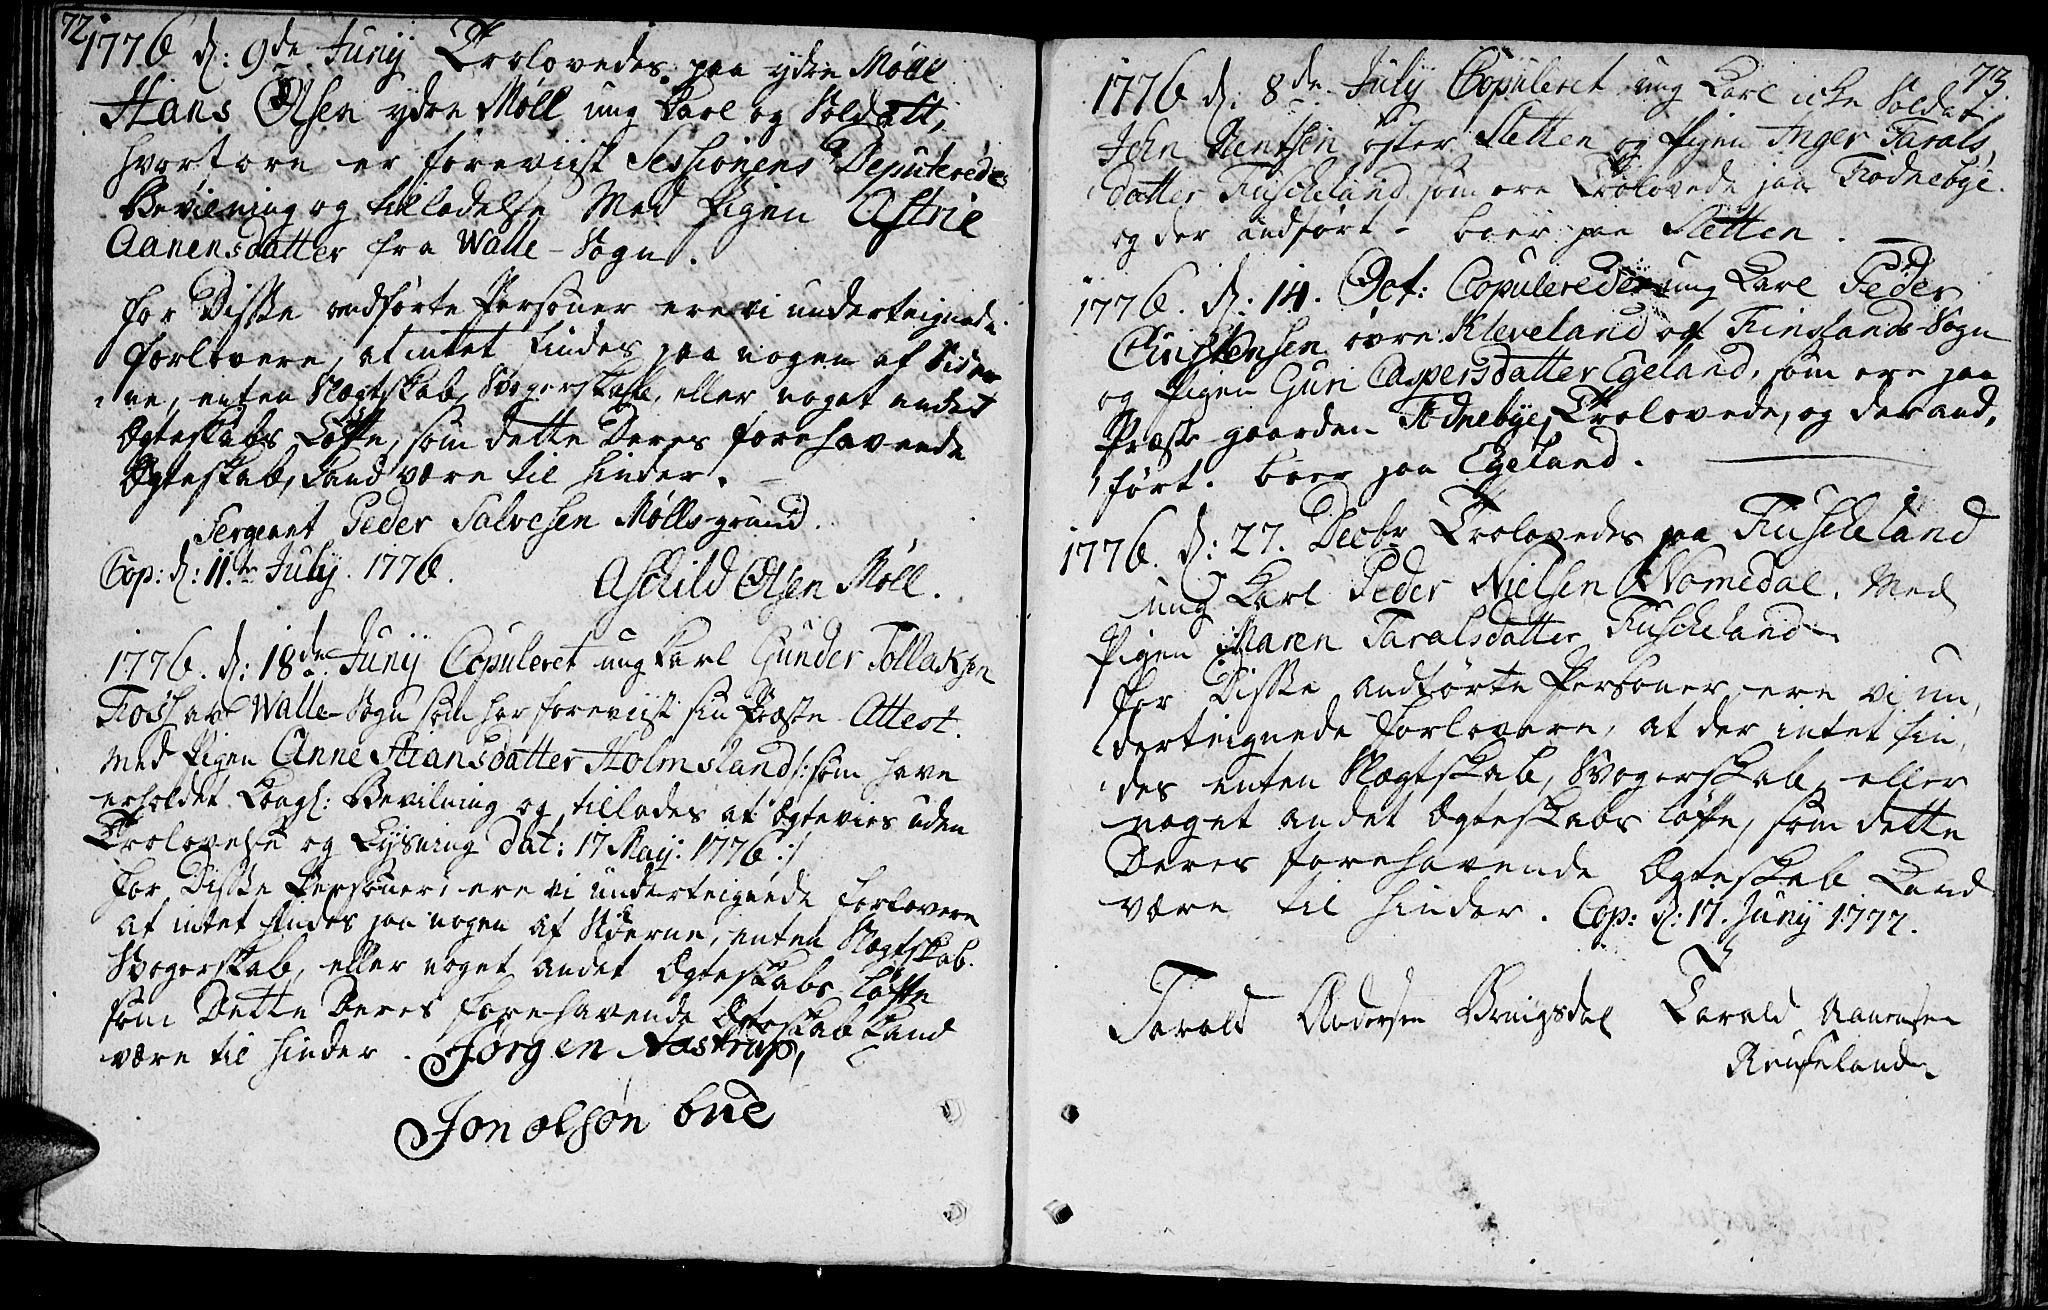 72.
1776 d: 9de Junij Trolovedes paa ydre Møll
Hans Olsen ydre Møll ung Karl og Soldatt,
hvortore er foreviist Sessionens Deputerede
Bevilning og tilladelse Med Pigen Astrie
Aanensdatter fra Walle-Sogn.
for Disse andførte Persohner ere vi underteignede
forlovere, at intet findes paa nogen af Sider
ne, enten Slægtskab, Svogerskab, eller noget andet
Ægteskabs Løfte, som dette Deres forehavende
Ægteskab, kand være til hinder.
Sergeant Peder Salvesen Møllsgrund.
Cop: d: 11te July. 1776.
Aschild Olsen Møll.
1776. d: 18de Junij Copuleret ung karl Gunder Tollaksen
Foss av Walle-Sogn som har foreviist sin Præste Attest.
Med Pigen Anne Stiansdatter Holmsland /: som have
erholdet Kongl: Bevilning og tillades at Ægtevies uden
Trolovelse og Lysning dat: 17 Maij: 1776 :/
for Disse Persohner, ere vi underteignede forlovere
at intet findes paa nogen af Siderne, enten Slægtskab.
Svogerskab, eller noget andet Ægteskabs Løfte
som Dette Deres forehavende Ægteskab kand
være til hinder. Jørgen Aastrup,
Jon olson bue
73.
1776 d: 8de Julij Copuleret ung Karl icke Soldat
John øster Sletten og Pigen Inger Tarals,
datter Fuscheland som ere Trolovede paa Fodnebye.
og der andført - boer paa Sletten.
1776. d: 14. Oct: Copulerede ung Karl Peder
Christensen øvre Kleveland af Finslands Sogn
og Pigen Guri Caspersdatter Egeland, som ere paa
Præste gaarden Fodnebye, Trolovede, og der and,
ført. boer paa Egeland.
1776. d: 27. Decbr Trolovedes paa Fuscheland
ung Karl Peder Nielsen Nomedal. Med
Pigen Maren Taralsdatter Fuscheland
for Disse andførte Persohner, ere vi un,
derteignede forlovere, at der intet fin,
des enten Slægtskab, Svogerskab, eller
noget andet Ægteskabs Løfte, som dette
Deres forehavende Ægteskab Kand
være til hinder. Cop: d: 17. Junij 1777.
Tarald Andersen Bruigsdal Tarald Aanensen